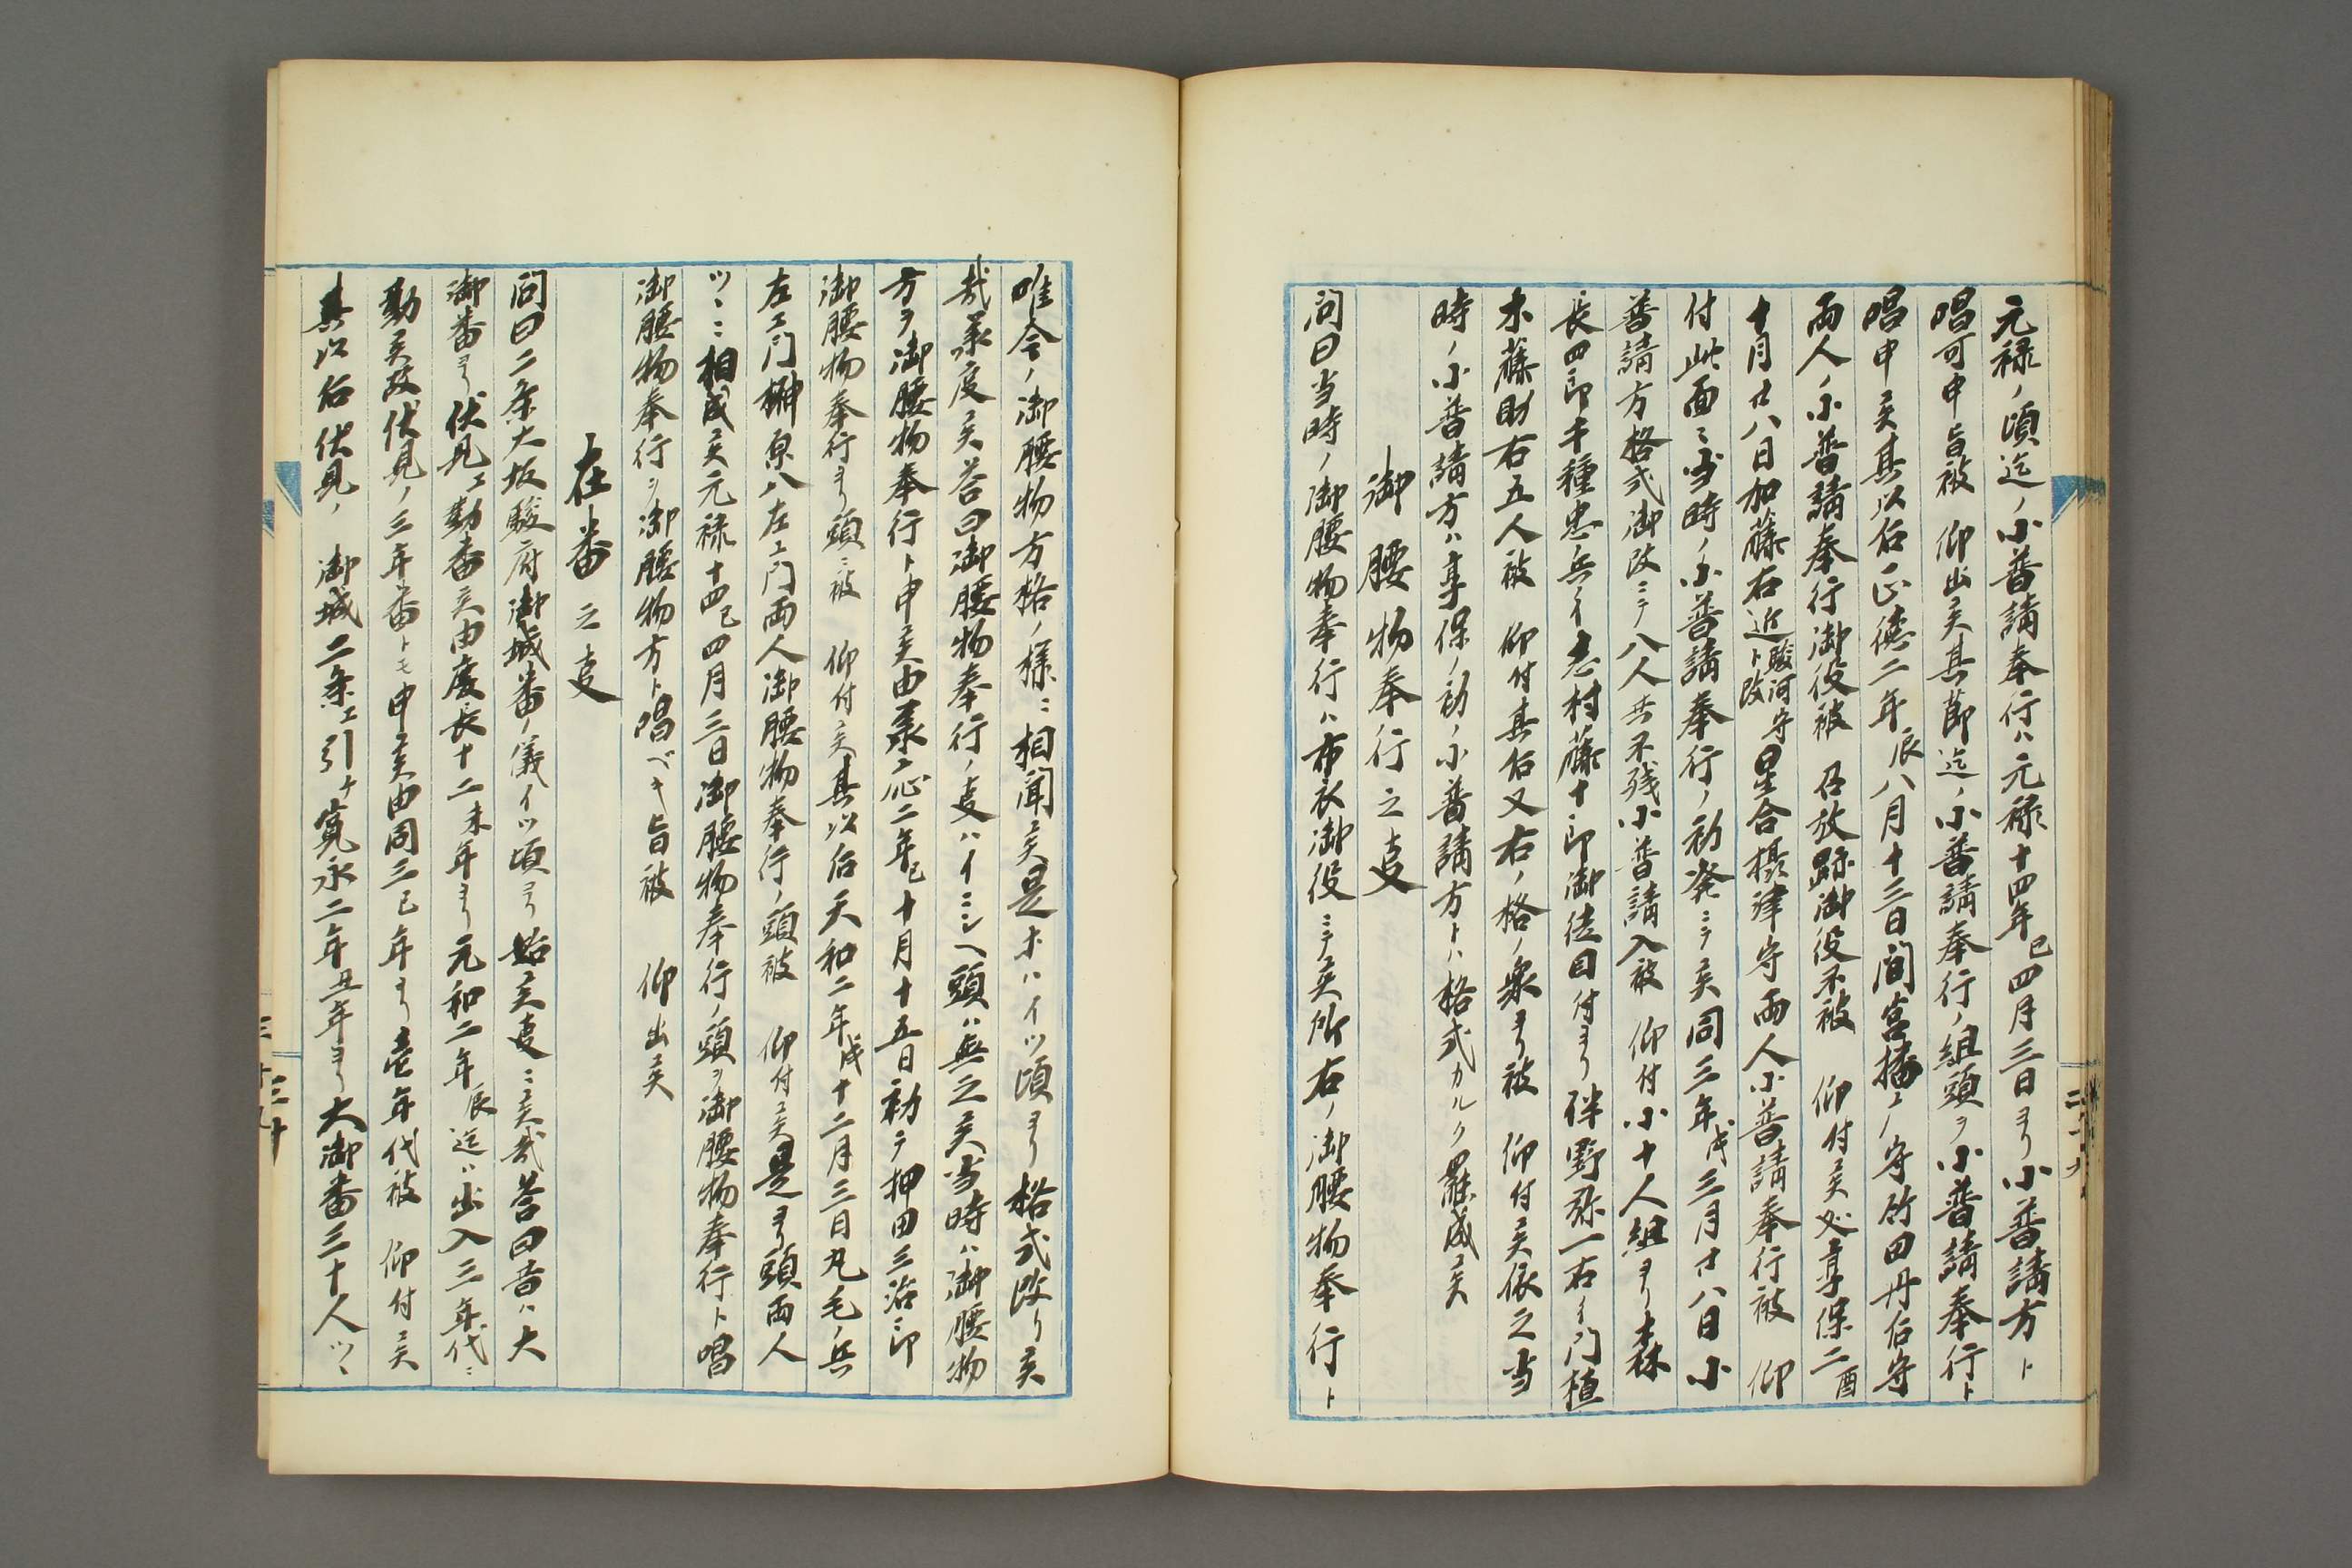 元禄ノ頃迄ノ小普請奉行ハ元禄十四年巳四月三日ヨリ小普請方ト
唱可申旨被　仰出候其節迄ノ小普請奉行ノ組頭ヲ小普請奉行ト
唱申候其以后正徳二年辰八月十三日間宮播广守竹田丹后守
両人ノ小普請奉行御役被　召放跡御役不被　仰付候処享保二酉
十月廿八日加藤右近駿河守ト改星合摂津守両人小普請奉行被　仰
付此面々当時ノ小普請奉行ノ初発ニテ候同三年戌三月廿八日小
普請方格式御改ニテ八人共不残小普請入被　仰付小十人組ヨリ森
長四郎千種忠兵ヱ志村藤十郎御徒目付ヨリ伴野弥一右ヱ門植
木藤助右五人被　仰付其后又右ノ格ノ衆ヨリ被　仰付候依之当
時ノ小普請方ハ享保ノ初ノ小普請方トハ格式カルク罷成候
御腰物奉行之夏
問曰当時ノ御腰物奉行ハ布衣御役ニテ候所右ノ御腰物奉行ト
唯今ノ御腰物方格ノ様ニ相聞候是ホハイツ頃ヨリ格式改リ候
哉承度候答曰御腰物奉行ノ夏ハイニシヘ頭ハ無之候当時ハ御腰物
方ヲ御腰物奉行ト申候由承応二年巳十月十五日初テ押田三治郎
御腰物奉行ヨリ頭ニ被　仰付候其以后天和二年戌十二月三日丸毛ノ兵
左ヱ門榊原八左ヱ門両人御腰物奉行ノ頭被　仰付候是ヨリ頭両人
ツヽニ相成候元禄十四巳四月三日御腰物奉行ノ頭ヲ御腰物奉行ト唱
御腰物奉行ヲ御腰物方ト唱ベキ旨被　仰出候
在番之夏
問曰二条大坂駿府御城番ノ儀イツ頃ヨリ始候夏ニ候哉答曰昔ハ大
御番ヨリ伏見ヱ勤番候由慶長十二未年ヨリ元和二年辰迄ハ出入三年代ニ
勤候故伏見ノ三年番トモ申候由同三巳年ヨリ壱年代被　仰付候
其以后伏見ノ　御城二条ヱ引ケ寛永二年丑年ヨリ大御番三十人ツヽ